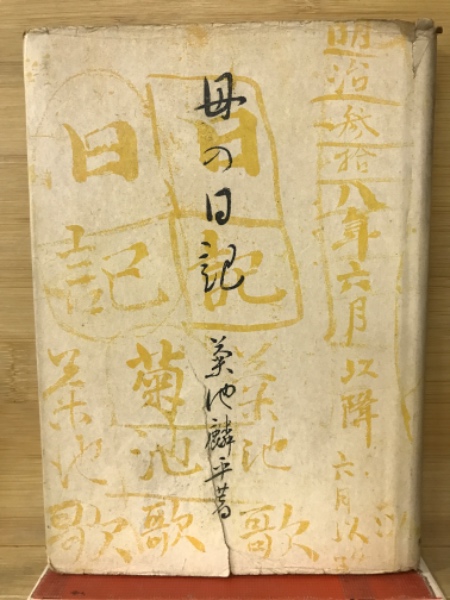 母の日記
菊池麟平著
明治参拾
八年六月
以降
六月以
日記
日記
菊池
菊池
菊池
歌
歌
歌